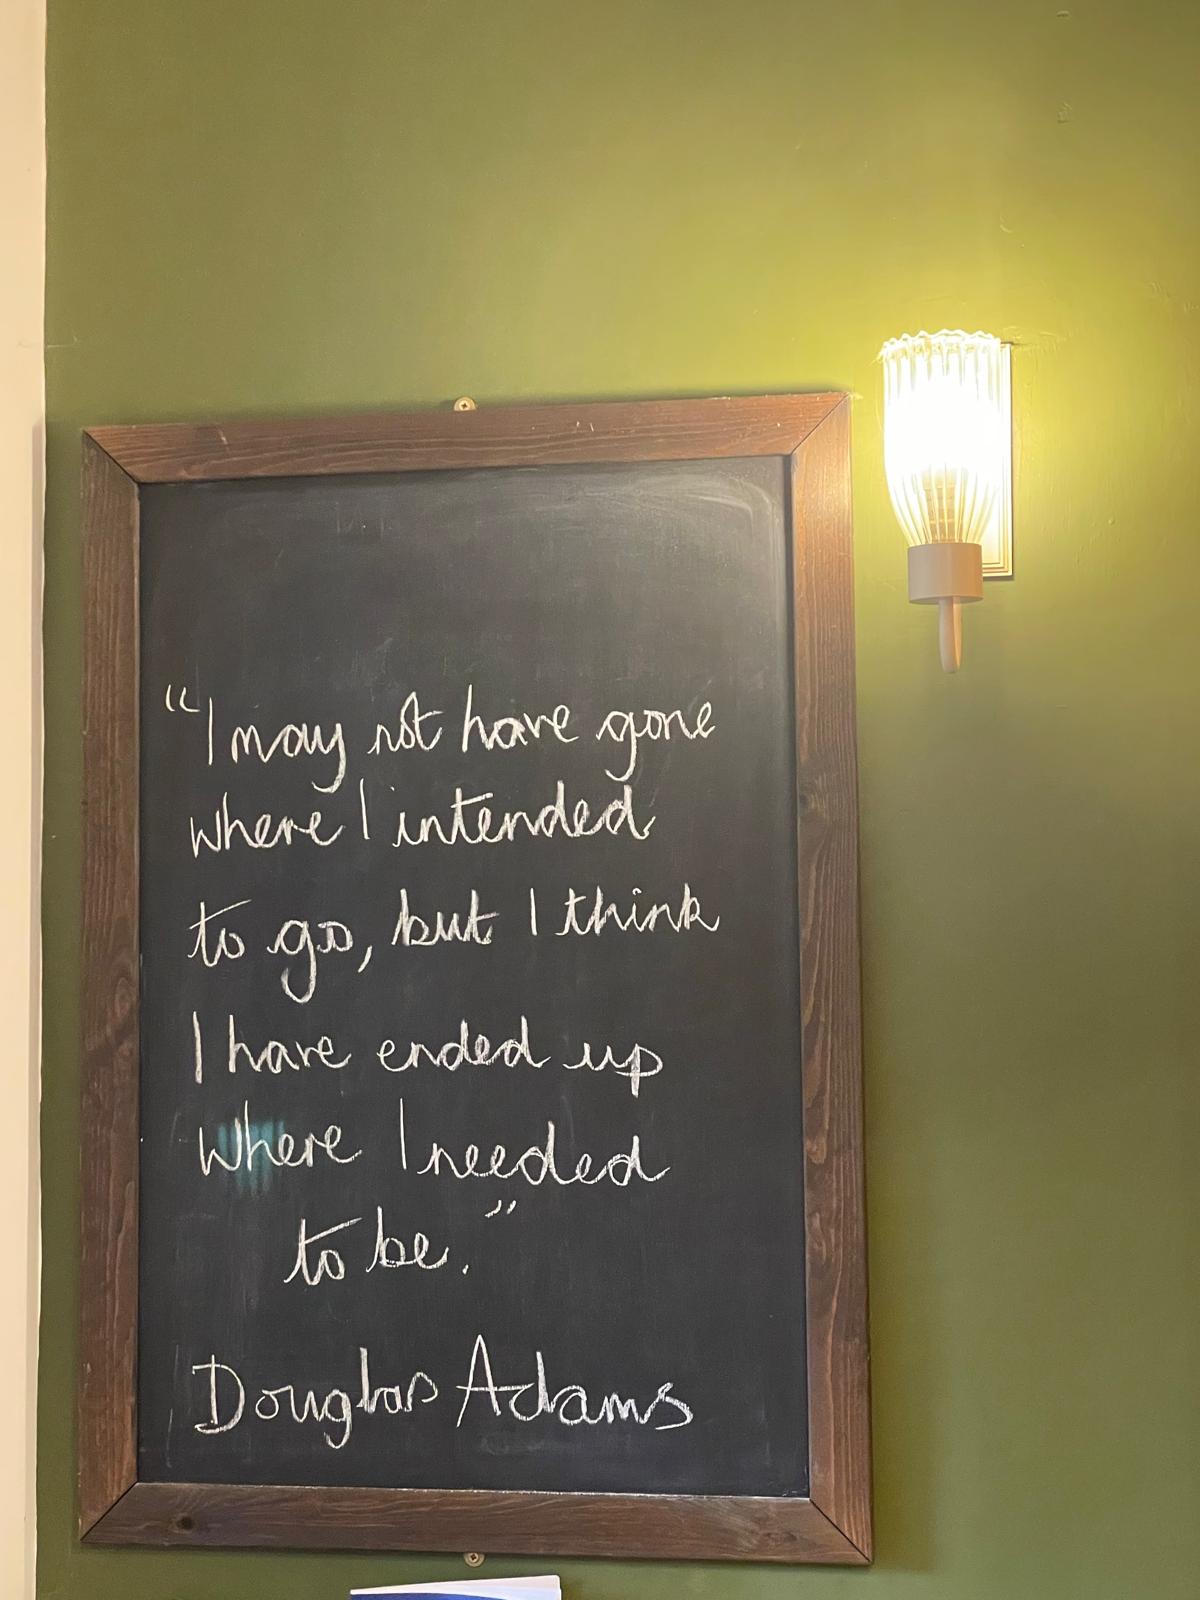 "I may not have gone
where I intended
to go, but I think
I have ended up
where I needed
to be."
Douglas Adams